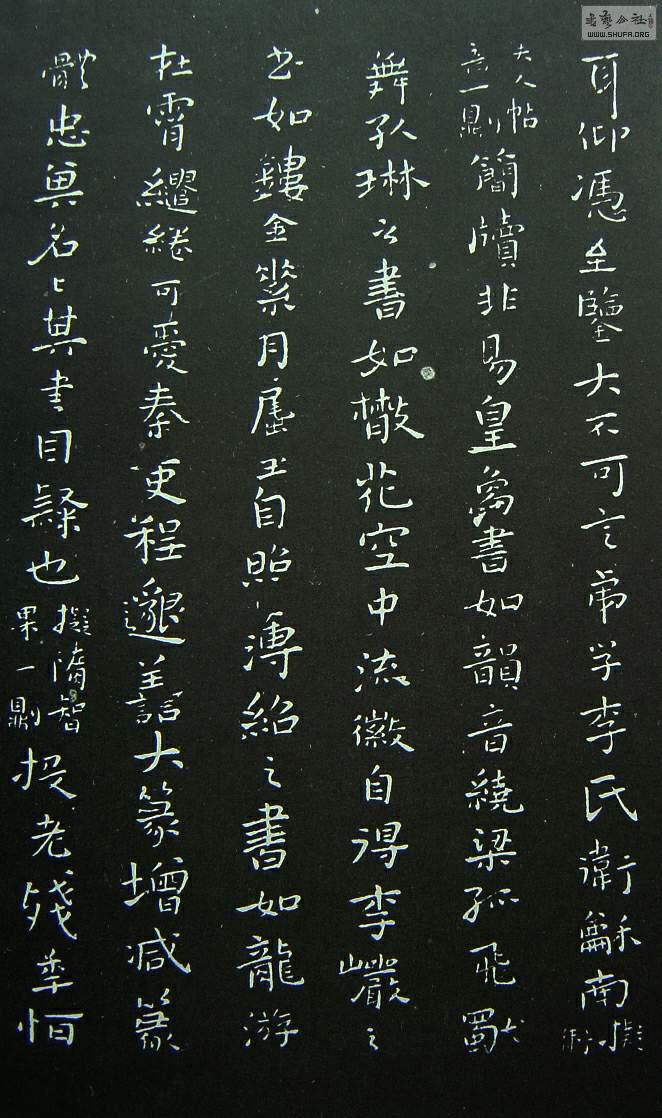 书艺公社
WWW.SHUFA.ORG
耳仰馮至鑒大不可言弟学李氏衛龢南擬衛
夫人帖意一則簡牘非易皇象書如韻音繞梁孤飛獨
舞孔琳之書如散花空中流徽自得李巖之
书如鏤金素月屈玉自照薄紹之書如龍游
在霄繾綣可愛秦吏程邈譱大篆增减篆
體忠其名上其書目隸也擬隋智果一則投老殘年恒